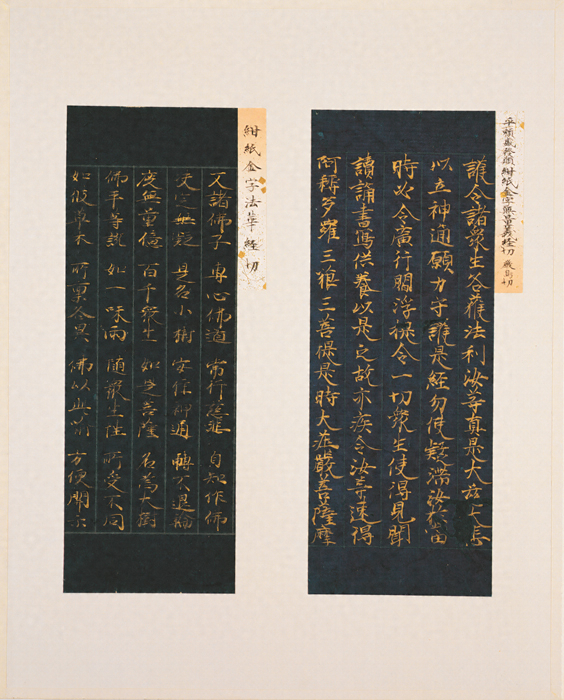 平頼盛發願紺紙金字無量義経切 厳島切
護令諸衆生各獲法利汝等真是大慈大悲
以立神通願力守護是経勿使疑滞汝於當
時必令廣行閻浮提令一切衆生使得見聞
讀誦書寫供養以是之故亦疾令汝等速得
阿耨多羅三藐三菩提是時大莊嚴菩薩摩
紺紙金字法華経切
又諸佛子 專心佛道 常行慈悲 自知作佛
決定無疑 是名小樹 安住神通 轉不退輪
度無量億 百千衆生 如是菩薩 名為大樹
佛平等說 如一味雨 随衆生性 所受不同
如彼草木 所稟各異 佛以此喻 方便開示